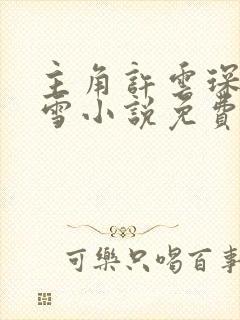 主角許雲琛
雪小說免費
可樂只喝百事